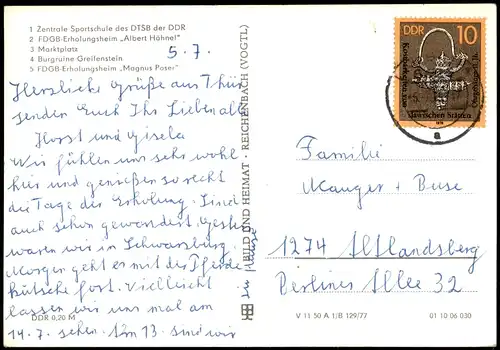 1 Zentrale Sportschule des DTSB der DDR
2 FDGB-Erholungsheim „Albert Höhnel"
3 Marktplatz
4 Burgruine Greifenstein
5 FDGB-Erholungsheim „Magnus Poser"
5.7.
Herzliche Grüße aus Thür
senden Euch Ihr Lieben all
Horst und Gisela
Wir fühlen uns sehr wohl
hier und genießen so recht
die Tage der Erholung. Sind
auch schon gewandert, Gestern
waren wir in Schwarzburg.
Morgen geht es mit der Pferde
kutsche fort. Vielleicht
lassen wir uns mal am
14.7. sehen. Am 13. sind wir
zu Hause
DDR 0,20 M
BILD UND HEIMAT · REICHENBACH (VOGTL)
DDR 10
Familie
Manger + Buse
1274 Altlandsberg
Berliner Allee 32
V 11 50 A 1/B 129/77
01 10 06 030